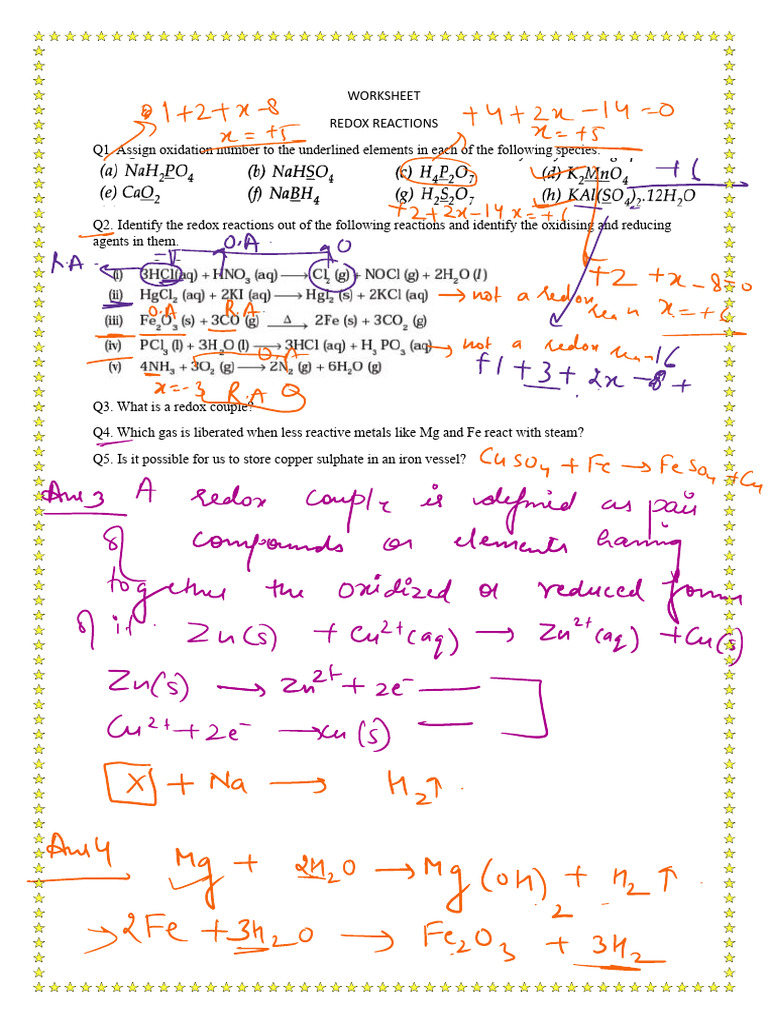 WORKSHEET
1+2+x-8
x = +5
REDOX REACTIONS
+4+2x-14=0
x = +5
Q1. Assign oxidation number to the underlined elements in each of the following species:
(a) NaH₂PO₄ (b) NaHSO₄ (c) H₄P₂O₇ (d) K₂MnO₄ +6
(e) CaO₂ (f) NaBH₄ (g) H₂S₂O₇ (h) KAl(SO₄)₂.12H₂O
+2+2x-14 x=+6
Q2. Identify the redox reactions out of the following reactions and identify the oxidising and reducing
agents in them.
R.A O.A 0
+2+x-8=0
x=+6
(i) 3HCl(aq) + HNO₃ (aq) ⟶ Cl₂ (g) + NOCl (g) + 2H₂O (l)
(ii) HgCl₂ (aq) + 2KI (aq) ⟶ HgI₂ (s) + 2KCl (aq) → not a redox
O.A R.A
(iii) Fe₂O₃ (s) + 3CO (g) Δ⟶ 2Fe (s) + 3CO₂ (g)
(iv) PCl₃ (l) + 3H₂O (l) ⟶ 3HCl (aq) + H₃ PO₃ (aq) → not a redox
O.A
(v) 4NH₃ + 3O₂ (g) ⟶ 2N₂ (g) + 6H₂O (g)
x=-3 R.A
+1+3+2x-
Q3. What is a redox couple?
Q4. Which gas is liberated when less reactive metals like Mg and Fe react with steam?
Q5. Is it possible for us to store copper sulphate in an iron vessel? CuSO₄ + Fe → FeSO₄ + Cu
Ans 3 A redox couple is defined as pair
of compounds or elements having
together the oxidized or reduced forms
of it. Zn(s) + Cu²⁺(aq) → Zn²⁺(aq) + Cu(s)
Zn(s) → Zn²⁺ + 2e⁻
Cu²⁺ + 2e⁻ → Cu(s)
X + Na → H₂↑.
Ans 4 Mg + 2H₂O → Mg(OH)₂ + H₂↑.
2Fe + 3H₂O → Fe₂O₃ + 3H₂